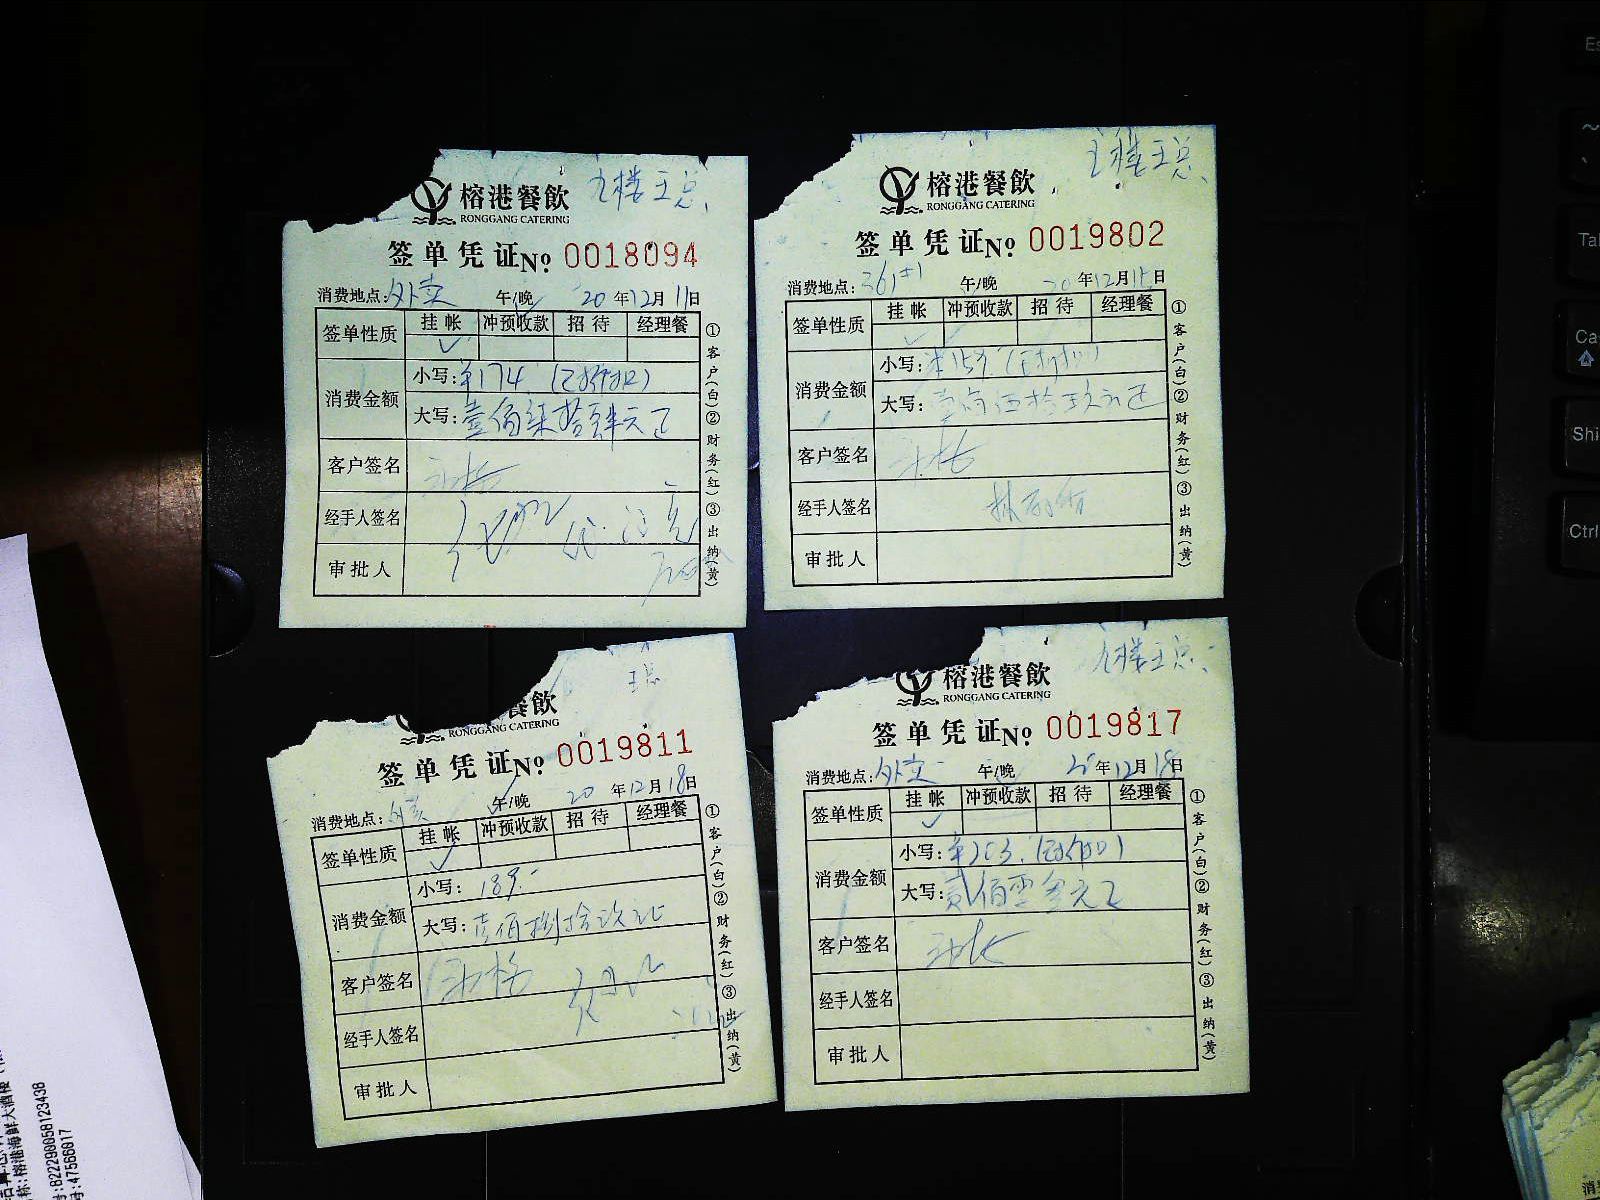 九楼王总
榕港餐飲
RONGGANG CATERING
签单凭证No. 0018094
消费地点:外卖 午/晚 20年12月11日
签单性质 挂帐 冲预收款 招待 经理餐
消费金额 小写:¥174
大写:壹佰柒拾肆元正
客户签名
经手人签名
审批人
①客户(白)②财务(红)③出纳(黄)
九楼王总
榕港餐飲
RONGGANG CATERING
签单凭证No. 0019802
消费地点:361# 午/晚 20年12月 日
签单性质 挂帐 冲预收款 招待 经理餐
消费金额 小写:¥159
大写:壹佰伍拾玖元正
客户签名
经手人签名
审批人
①客户(白)②财务(红)③出纳(黄)
王总
餐飲
RONGGANG CATERING
签单凭证No. 0019811
消费地点:外卖 午/晚 20年12月18日
签单性质 挂帐 冲预收款 招待 经理餐
消费金额 小写:189.-
大写:壹佰捌拾玖元正
客户签名
经手人签名
审批人
①客户(白)②财务(红)③出纳(黄)
九楼王总
榕港餐飲
RONGGANG CATERING
签单凭证No. 0019817
消费地点:外卖 午/晚 20年12月18日
签单性质 挂帐 冲预收款 招待 经理餐
消费金额 小写:¥203.
大写:贰佰零叁元正
客户签名
经手人签名
审批人
①客户(白)②财务(红)③出纳(黄)
称:榕港海鲜大酒楼
号:822290058123438
号:47566017
Tab
Shi
Ctrl
消